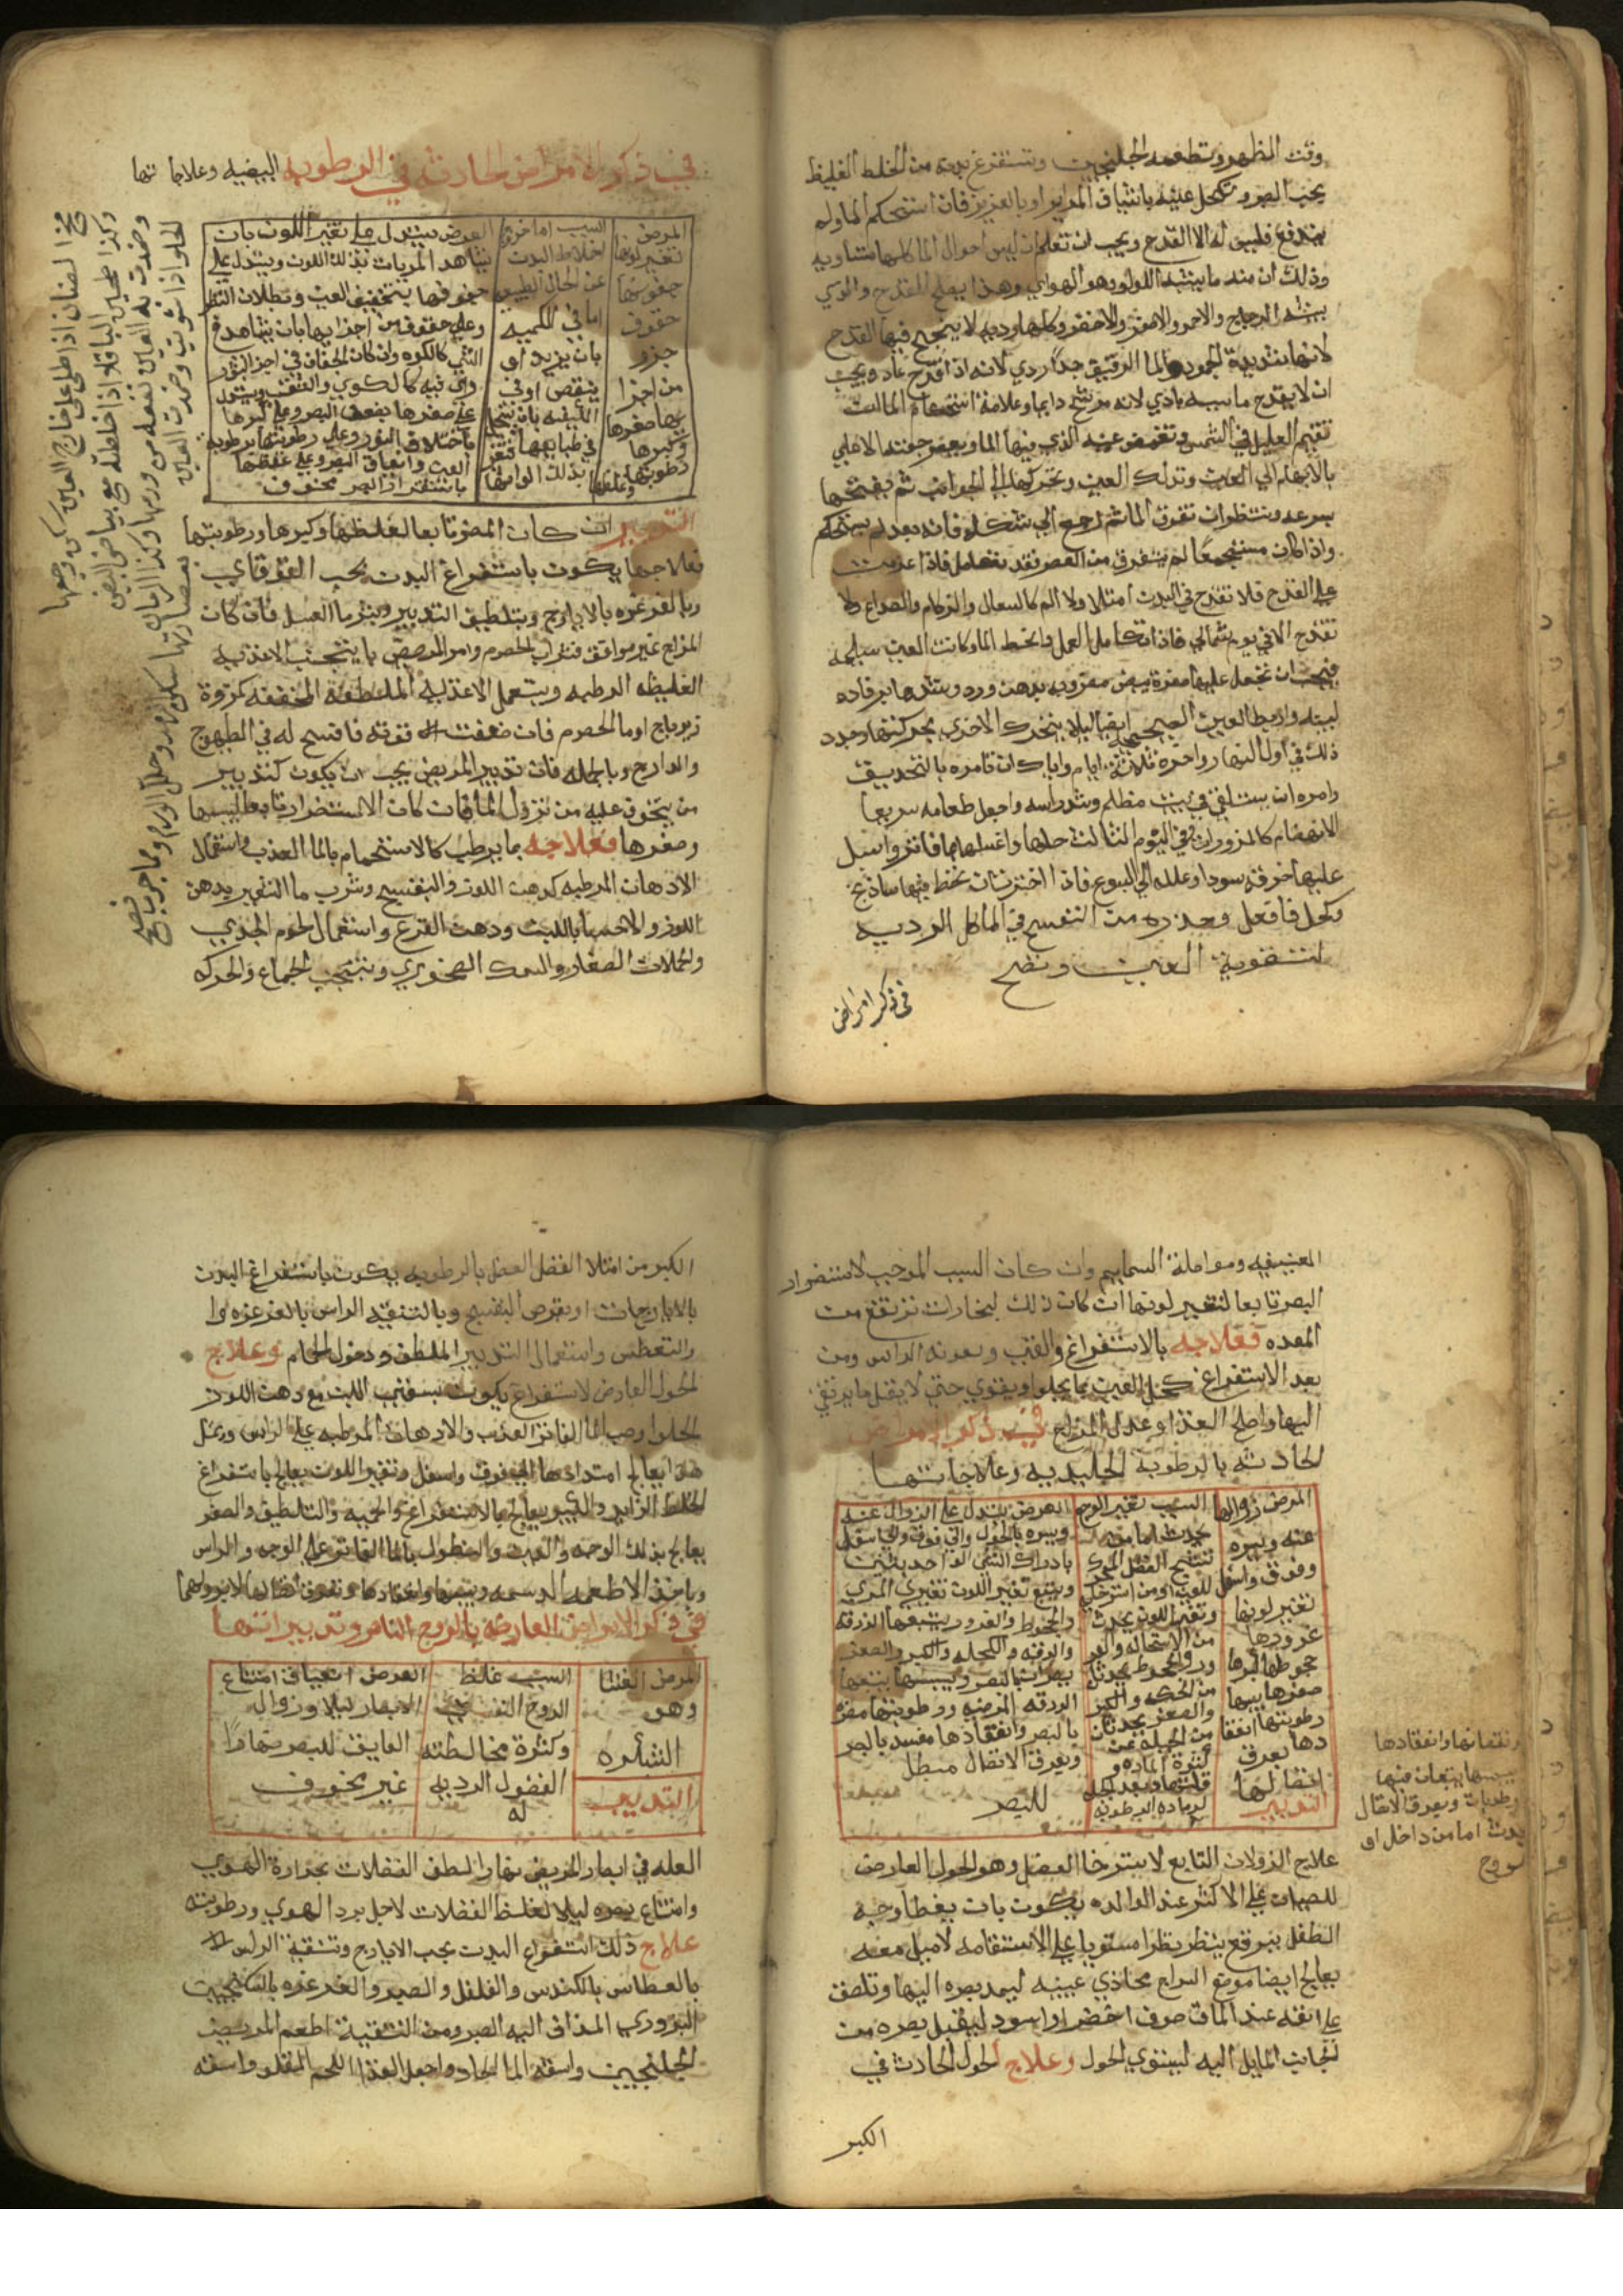 وقت الظهر وتطعمه الجلنجبين وتستفرغ بدنه من الخلط الغليظ
بحب الصبر وتكحل عينيه باشياف المراير او بالعزيز فان استحكم الما ولم
يندفع فليس له الا القدح ويجب ان تعلم ان ليس احوال الما كلها متساويه
وذلك ان منه ما يشبه اللولو وهو الهوايي وهذا يصلح للقدح والذي
يشبه الزجاج والاحمر والاصفر والاخضر وكلها رديه لا ينجح فيها القدح
لانها شديدة الجمود والما الرقيق جدا ردي لانه اذا قدح عاد ويجب
ان لا يقدح ما سببه بادي لانه مرشح دايما وعلامة استحكام الما انت
تقيم العليل في الشمس وتغمض عينه الذي فيها الما وتعصر جفنها الاعلي
بالابهام الي العين وتدلك العين وتحركها الي الجوانب ثم تفتحها
بسرعه وتنظر فان تفرق الما ثم رجع الي شكله فانه بعد لم يستحكم
واذا كان مستجمعا لم يتفرق من العصر فقد تكامل فاذا عزمت
علي القدح فلا تقدح في البدن امتلا ولا الم كالسعال والزكام والصداع ولا
تقدح الا في يوم شمالي فاذا تكامل العمل وانحط الما وكانت العين سليمه
فيجب ان تجعل عليها صفرة بيض مضروبه بدهن ورد وتشدها برفاده
لينه واربط العين الصحيحه ايضا ليلا تتحرك الاخري بحركتها وجدد
ذلك في اول النهار واخره ثلاثة ايام واياك ان تامره بالتحديق
وامره ان يستلقي في بيت مظلم وشد راسه واجعل طعامه سريعا
الانهضام كالمزورات وفي اليوم الثالث حلها واغسلها بما فاتر واسبل
عليها خرقه سودا وعلله الي السبوع فاذا اخترت ان تحط فيها ساذج
وكحل فافعل وحذره من التفسح في الماكل الرديه
لتقوية العين وتصح
في ذكر امراض
في ذكر الامراض الحادثه في الرطوبه البيضيه وعلاجاتها
المرض
تغير لونها
جفوفها
جفوف
جزو
من اجزا
يها صغرها
وكبرها
رطوبتها وغلظها
السبب اما خروج
اخلاط البدن
عن الحال الطبيعي
اما في الكميه
بان يزيد او
ينقص او في
الكيفيه بان تتحيل
في طبايعها فتتغير
بذلك الوانها
العرض يستدل علي تغير اللون بان
يشاهد المريات بذلك اللون ويستدل علي
جفوفها بتخفيف العين وبطلان النظر
وعلي جفوف من اجزايها بان يشاهد في
الشي كالكوه وان كان الجفاف في اجزا كثيره
راي فيه كالكوي والثقب ويستدل
علي صغرها بضعف البصر وعلي كبرها
باختلاف النور وعلي رطوبتها برطوبة
العين وانعياق البصر وعلي غلظها
باستقرار البصر مخوف
التدبير ان كانت المضره تابعا لغلظها وكبرها ورطوبتها
فعلاجها يكون باستفراغ البدن بحب القوقاي
وبالغرغره بالايارج وبتلطيف التدبير وبشرب ما العسل فان كان
المزاج غير موافق فشراب الحصرم وامر المريض بان يتجنب الاغذيه
الغليظه الرطبه ويستعمل الاغذيه الملطفه المجففه كمزورة
زيرباج او ما الحصرم فان ضعفت قوته فافسح له في الطيهوج
والدارج وبالجمله فان تدبير المريض يجب ان يكون كتدبير
من يتخوف عليه من نزول الما فان كان الاستضرار تابعا ليبسها
وصغرها فعلاجه بما يرطب كالاستحمام بالما العذب واستعمال
الادهان المرطبه كدهن اللوز والبنفسج وشرب ما الشعير بدهن
اللوز والاحسا باللبن ودهن القرع واستعمال لحوم الجدي
والحملان الصغار والسمك الصخوري وتجنب الجماع والحركه
مخ الضان اذا طلي علي خارج العين سكن وجعها
وكذا طحين الباقلا اذا خلطته مع بياض البيض
وضمدت به العين نفعه من ورمها وكذا الرمان
الحلو اذا شويت وضمدت العين
بعصارتها سكن الم وحلل الورم ومما جرب فصح
العنيفه ومواصلة السمايم وان كان السبب الموجب لاستضرار
البصر تابعا لتغير لونها ان كان ذلك لبخارات ترتفع من
المعده فعلاجه بالاستفراغ والقي ومعونه الراس ومن
بعد الاستفراغ كحل العين بما يجلو ويقوي حتي لا يقبل ما يرتقي
اليها واصلح الغذا وعدل المزاج في ذكر الامراض
الحادثه بالرطوبة الجليديه وعلاجاتها
المرض زوالها
عنه ويسره
وفوق واسفل
تغير لونها
غوورها
جحوظها كبرها
صغرها يبسها
رطوبتها انعقا
دها تعرف
اتصالها
التدبير
السبب تغير الوجع
يحدث اما من
تشنج العضل المحرك
للعين او من استرخا
وتغير اللون يحدث
من الاستحاله والغو
ور والجحوظ يحدثان
من الحكه والكبر
والصغر يحدثان
من الجبله عن
كثرة الماده و
قلتها
العرض يستدل علي الزوال عنه
ويسره بالحول والي فوق والي اسفل
بادراك الشي الواحد شيئين
ويتبع تغير اللون تغير المري
والجحوظ والغوور يتبعها الزرقه
والكحله والكبر والصغر
يضران بالبصر ويبسها يتبعها
الزرقه المرضيه ورطوبتها مضره
بالبصر وانعقادها مفسد بالبصر
وتعرف الاتصال مبطل
للبصر
ونقصانها وانعقادها
يبسها يتبعان فيها
رطوبات وتعرق الاتصال
يحدث اما من داخل او
خروج
علاج الزولان التابع لاسترخا العضل وهو الحول العارض
للصبيان علي الاكثر عند الولاده يكون بان يغطا وجه
الطفل ببرقع ينظر نظرا مستويا علي الاستقامه لا ميل معه
يعالج ايضا موضع السراج محاذي عينيه ليمد بصره اليها وتلصق
علي انفه عند الماق صوف اخضر او اسود ليقبل بصره من
الجانب المايل اليه ليستوي الحول وعلاج الحول الحادث في
الكبر
الكبر من امتلا الفضل العضل بالرطوبه يكون باستفراغ البدن
بالايارجات او بقرص البنفسج وبالتنقيه الراس بالغرغره وا
والتعطس واستعمال التدبير الملطف ودخول الحمام وعلاج
الحول العارض لاستفراغ يكون بسقي اللبن مع دهن اللوز
الحلو وصب الما الفاتر العذب والادهان المرطبه علي الراس وبمثل
هذا يعالج امتدادها الي فوق واسفل وتغير اللون يعالج باستفراغ
الخلط الزايد والكبر يعالج بالاستفراغ والحميه والتلطيف والصغر
يعالج بذلك الوجه والعين والنطول بالما الفاتر علي الوجه والراس
وباخذ الاطعمه الدسمه ويبسها وانعقادها وتفرق اتصالها لا برو لهما
في ذكر الامراض العارضه بالروح الناظر وتدبيراتها
المرض العشا
وهو
الشبكره
التدبير
السبب غلظ
الروح النفساني
وكثرة مخالطته
الفضول الرديه
له
العرض انعياق امتناع
الابصار ليلا وزوال
العايق للبصر نهارا
غير مخوف
العله في ابصار المريض نهارا لطف الفضلات بحرارة الهوي
وامتناع بصره ليلا لغلظ الفضلات لاجل برد الهوي ورطوبته
علاج ذلك استفراغ البدن بحب الايارج وتنقية الراس
بالعطاس بالكندس والفلفل والصبر والغرغره بالسكنجبين
البزوري المداف اليه الصبر ومن التنقية اطعم المريض
الجلنجبين واسقه الما الحار واجعل الغذا اللحم المقلو واسقه